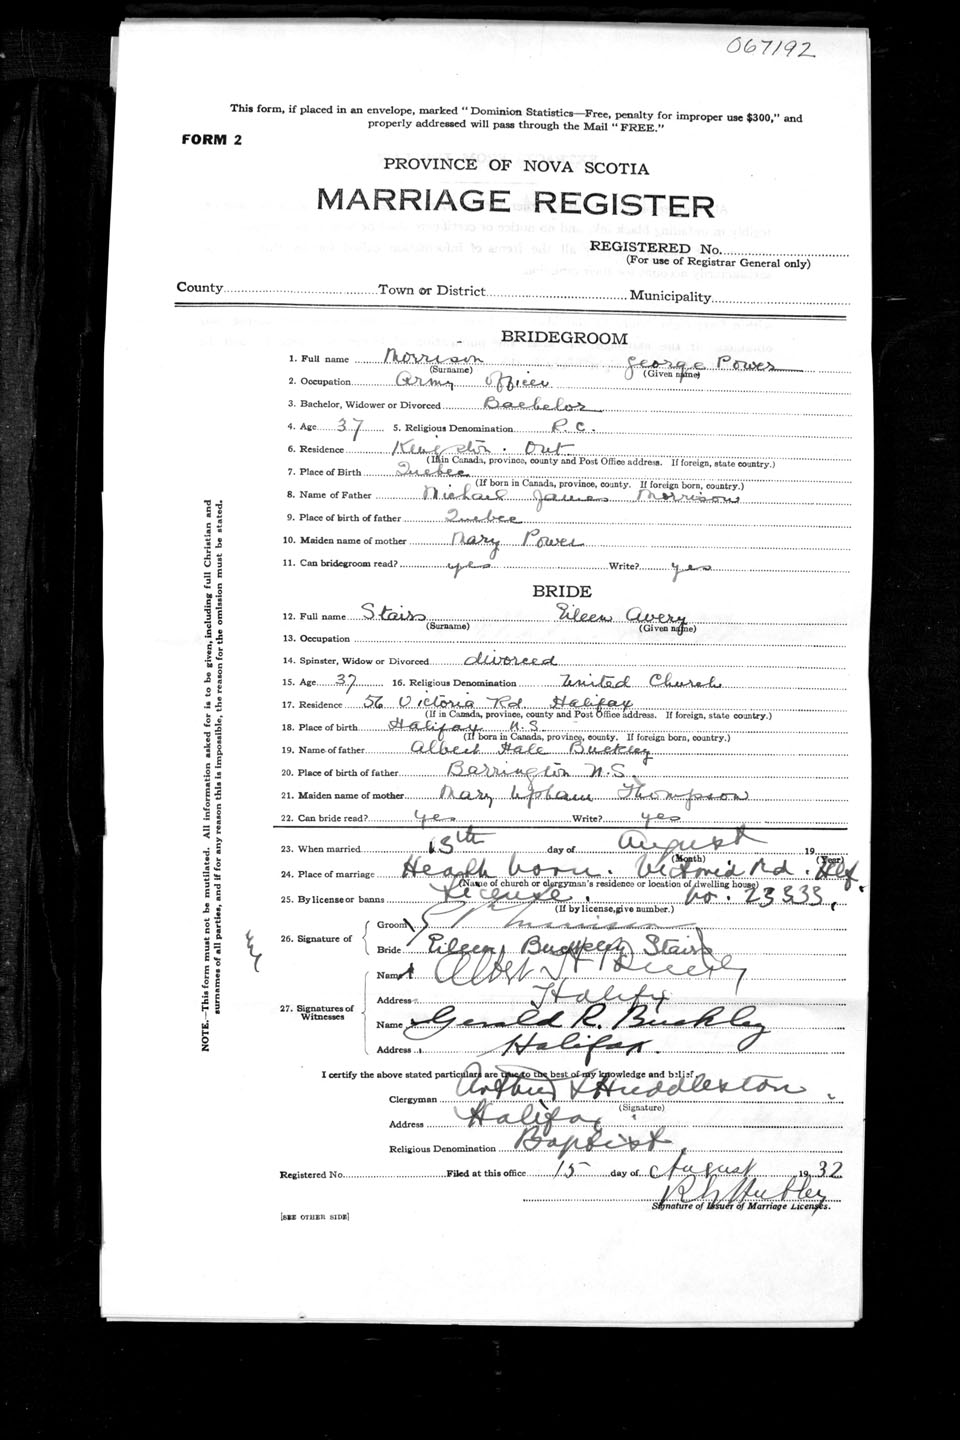 067192
This form, if placed in an envelope, marked "Dominion Statistics—Free, penalty for improper use $300," and
properly addressed will pass through the Mail "FREE."
FORM 2
PROVINCE OF NOVA SCOTIA
MARRIAGE REGISTER
REGISTERED No.
(For use of Registrar General only)
County Town or District Municipality
BRIDEGROOM
1. Full name Morrison George Power
(Surname) (Given name)
2. Occupation Army Officer
3. Bachelor, Widower or Divorced Bachelor
4. Age 37 5. Religious Denomination R.C.
6. Residence Kingston. Ont
(If in Canada, province, county and Post Office address. If foreign, state country.)
7. Place of Birth Quebec
(If born in Canada, province, county. If foreign born, country.)
8. Name of Father Michael James Morrison
9. Place of birth of father Quebec
10. Maiden name of mother Mary Power
11. Can bridegroom read? yes Write? yes
BRIDE
12. Full name Stairs Eileen Avery
(Surname) (Given name)
13. Occupation
14. Spinster, Widow or Divorced divorced
15. Age 37 16. Religious Denomination United Church
17. Residence 56 Victoria Rd Halifax
(If in Canada, province, county and Post Office address. If foreign, state country.)
18. Place of birth Halifax N.S.
(If born in Canada, province, county. If foreign born, country.)
19. Name of father Albert Hale Buckley
20. Place of birth of father Barrington N.S.
21. Maiden name of mother Mary Upham Thompson
22. Can bride read? yes Write? yes
23. When married 15th day of August 19
(Month) (Year)
24. Place of marriage Heath born. Victoria Rd. Hfx.
(Name of church or clergyman's residence or location of dwelling house)
25. By license or banns License. No. 23333.
(If by license, give number.)
26. Signature of
Groom Morrison
Bride Eileen Buckley Stairs
27. Signatures of Witnesses
Name Albert H
Address Halifx
Name Gerald R. Buckley
Address Halifax.
I certify the above stated particulars are true to the best of my knowledge and belief
Clergyman Arthur Huddleston.
(Signature)
Address Halifax
Religious Denomination Baptist.
Registered No. Filed at this office 15 day of August 1932
Hubley
Signature of Issuer of Marriage Licenses.
[SEE OTHER SIDE]
NOTE.—This form must not be mutilated. All information asked for is to be given, including full Christian and
surnames of all parties, and if for any reason this is impossible, the reason for the omission must be stated.